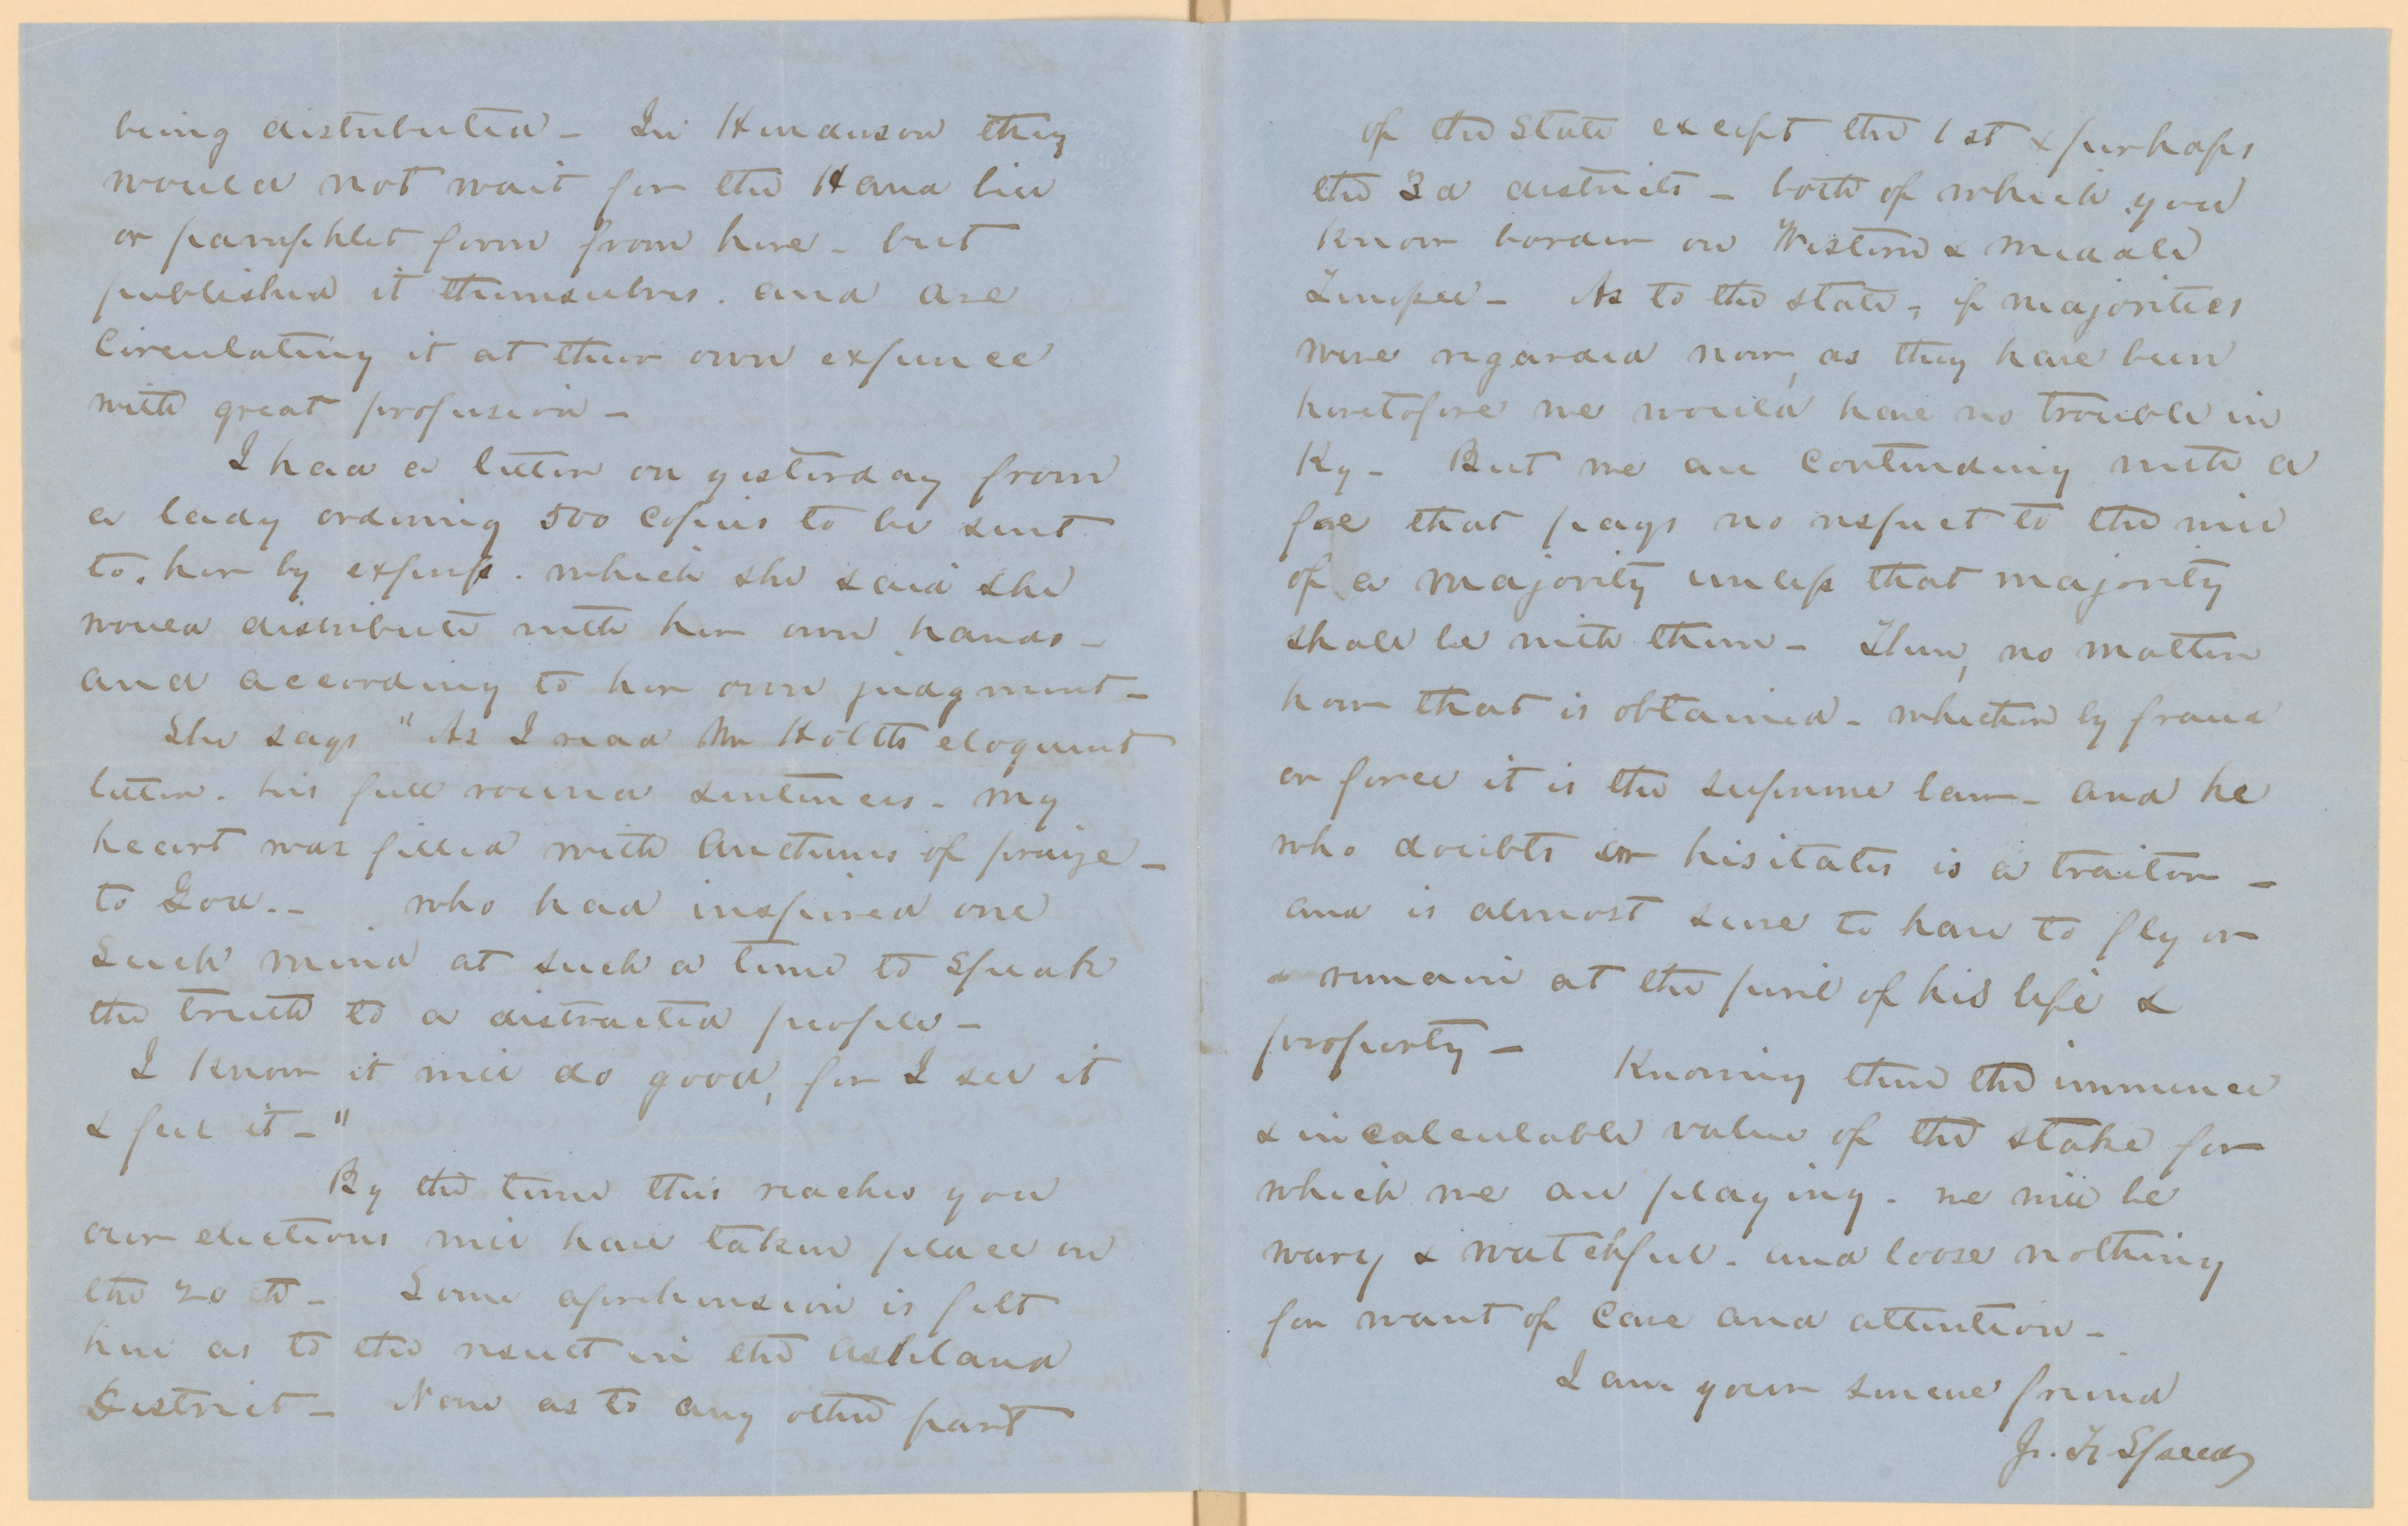 being distributed - In Henderson they
would not wait for the Hand bill
or pamphlet form from here - but
published it themselves. and are
Circulating it at their own expence
with great profusion -
I had a letter on yesterday from
a lady ordering 500 copies to be sent
to. her by express. which she said she
would distribute with her own hands -
and according to her own judgment -
She says "As I read Mr Holtts eloquent
letter. his full round sentences - my
heart was filled with anthems of praize -
to God. - who had inspired one
Such mind at such a time to Speak
the truth to a distracted people -
I know it will do good, for I see it
& feel it - "
By the time this reaches you
our elections will have taken place on
the 20th - Some aprehension is felt
here as to the result in the Ashland
District - None as to any other part
of the State except the 1st & perhaps
the 3d districts - both of which you
know border on Western & Middle
Tennessee - As to the state, if majorities
were regarded now, as they have been
heretofore we would have no trouble in
Ky - But we are contending with a
foe that pays no respect to the will
of a majority unless that majority
shall be with them - Then, no matter
how that is obtained - whether by fraud
or force it is the supreme law - and he
who doubts or hesitates is a traitor -
and is almost sure to have to fly or
remain at the peril of his life &
property - Knowing then the immence
& incalculable value of the stake for
which we are playing. we will be
wary & watchful - and loose nothing
for want of care and attention -
I am your sincere friend
J. F. Speed